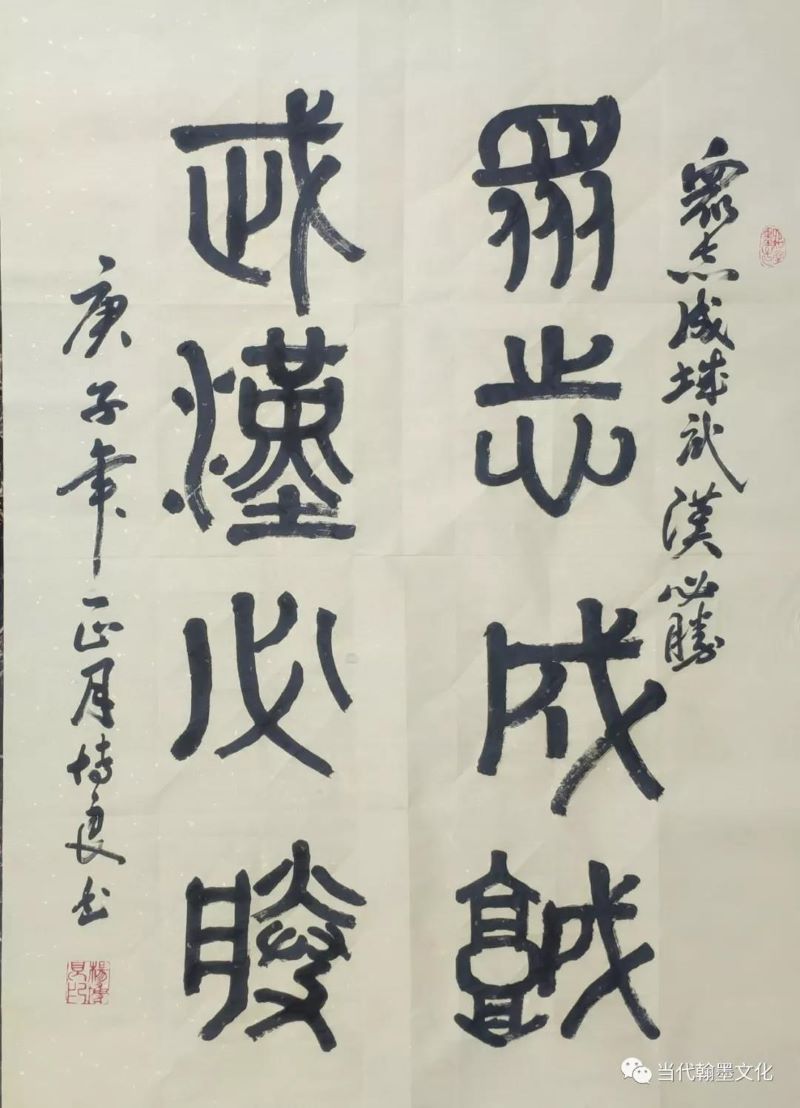 衆志成城武漢必勝
眾志成城
武漢必勝
庚子年正月博良书
当代翰墨文化